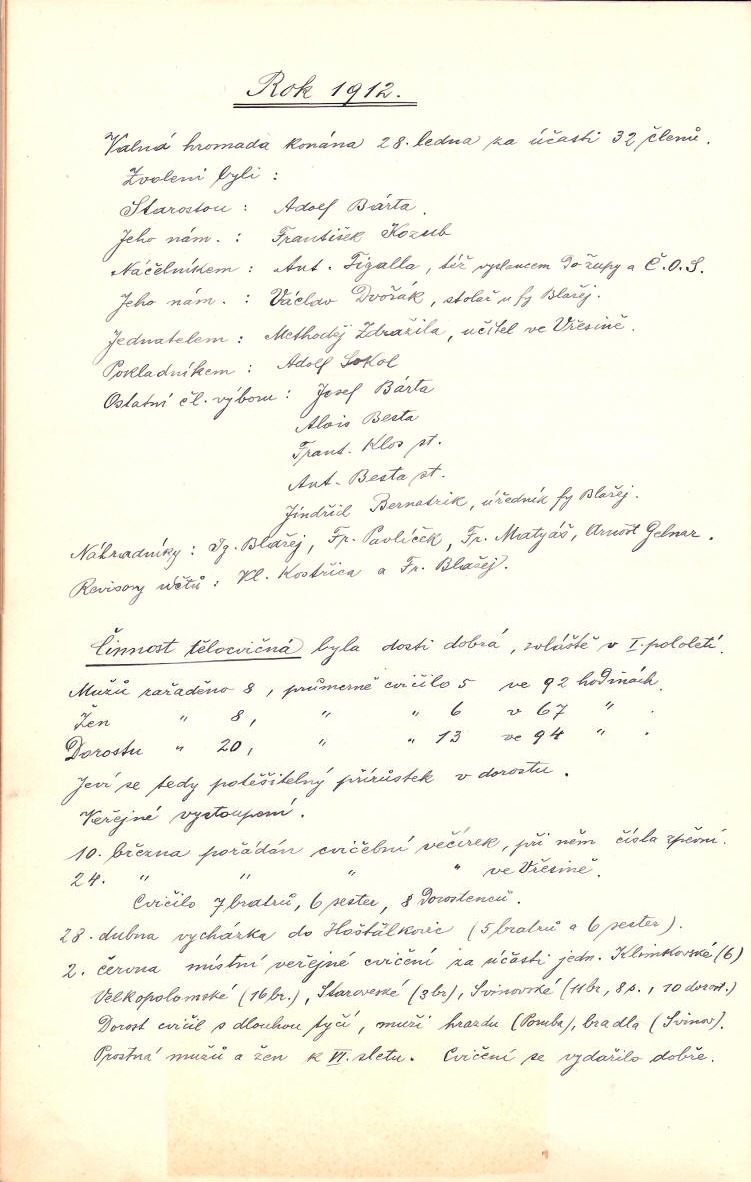 Rok 1912.
Valná hromada konána 28. ledna za účasti 32 členů.
Zvoleni byli :
Starostou : Adolf Bárta.
Jeho nám. : František Kozub
Náčelníkem : Ant. Figalla, též vyslancem do župy a Č.O.S.
Jeho nám. : Václav Dvořák, stolař u fy Blažej.
Jednatelem : Methoděj Zdražila, učitel ve Vřesině.
Pokladníkem : Adolf Sokol
Ostatní čl. výboru : Josef Bárta
Alois Besta
Frant. Klos st.
Ant. Besta st.
Jindřich Bernatzik, úředník fy Blažej.
Náhradníky : Ig. Blažej, Fr. Pavlíček, Fr. Matyáš, Arnošt Gelnar.
Revisory účtů : Kl. Kostřica a Fr. Blažej.
Činnost tělocvičná byla dosti dobrá, zvláště v I. pololetí.
Mužů zařaděno 8, průměrně cvičilo 5 ve 92 hodinách.
Žen " 8, " " 6 v 67 " .
Dorostu " 20, " " 13 ve 94 " .
Jeví se tedy potěšitelný přírůstek v dorostu.
Veřejné vystoupení.
10. března pořádán cvičební večírek, při něm čísla zpěvní.
24. " " " " ve Vřesině.
Cvičilo 7 bratrů, 6 sester, 8 Dorostenců.
28. dubna vycházka do Hoštálkovic (5 bratrů a 6 sester).
2. června místní veřejné cvičení za účasti jedn. Klimkovské (6)
Velkopolomské (16 br.), Staroveské (3 br), Svinovské (11 br, 8 s., 10 dorost.)
Dorost cvičil s dlouhou tyčí, muži hrazdu (Poruba), bradla (Svinov).
Prostná mužů a žen k VI. sletu. Cvičení se vydařilo dobře.